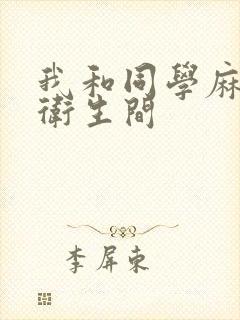 我和同學麻
衛生間
李屏東